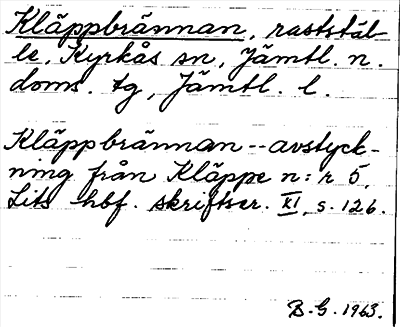 Kläppbrännan, raststäl-
le, Kyrkås sn, Jämtl. n.
doms. tg, Jämtl. l.
Kläppbrännan -- avstyck-
ning från Kläppe n:r 5,
Lits hbf. skriftser. XI, s. 126.
B.G. 1963.